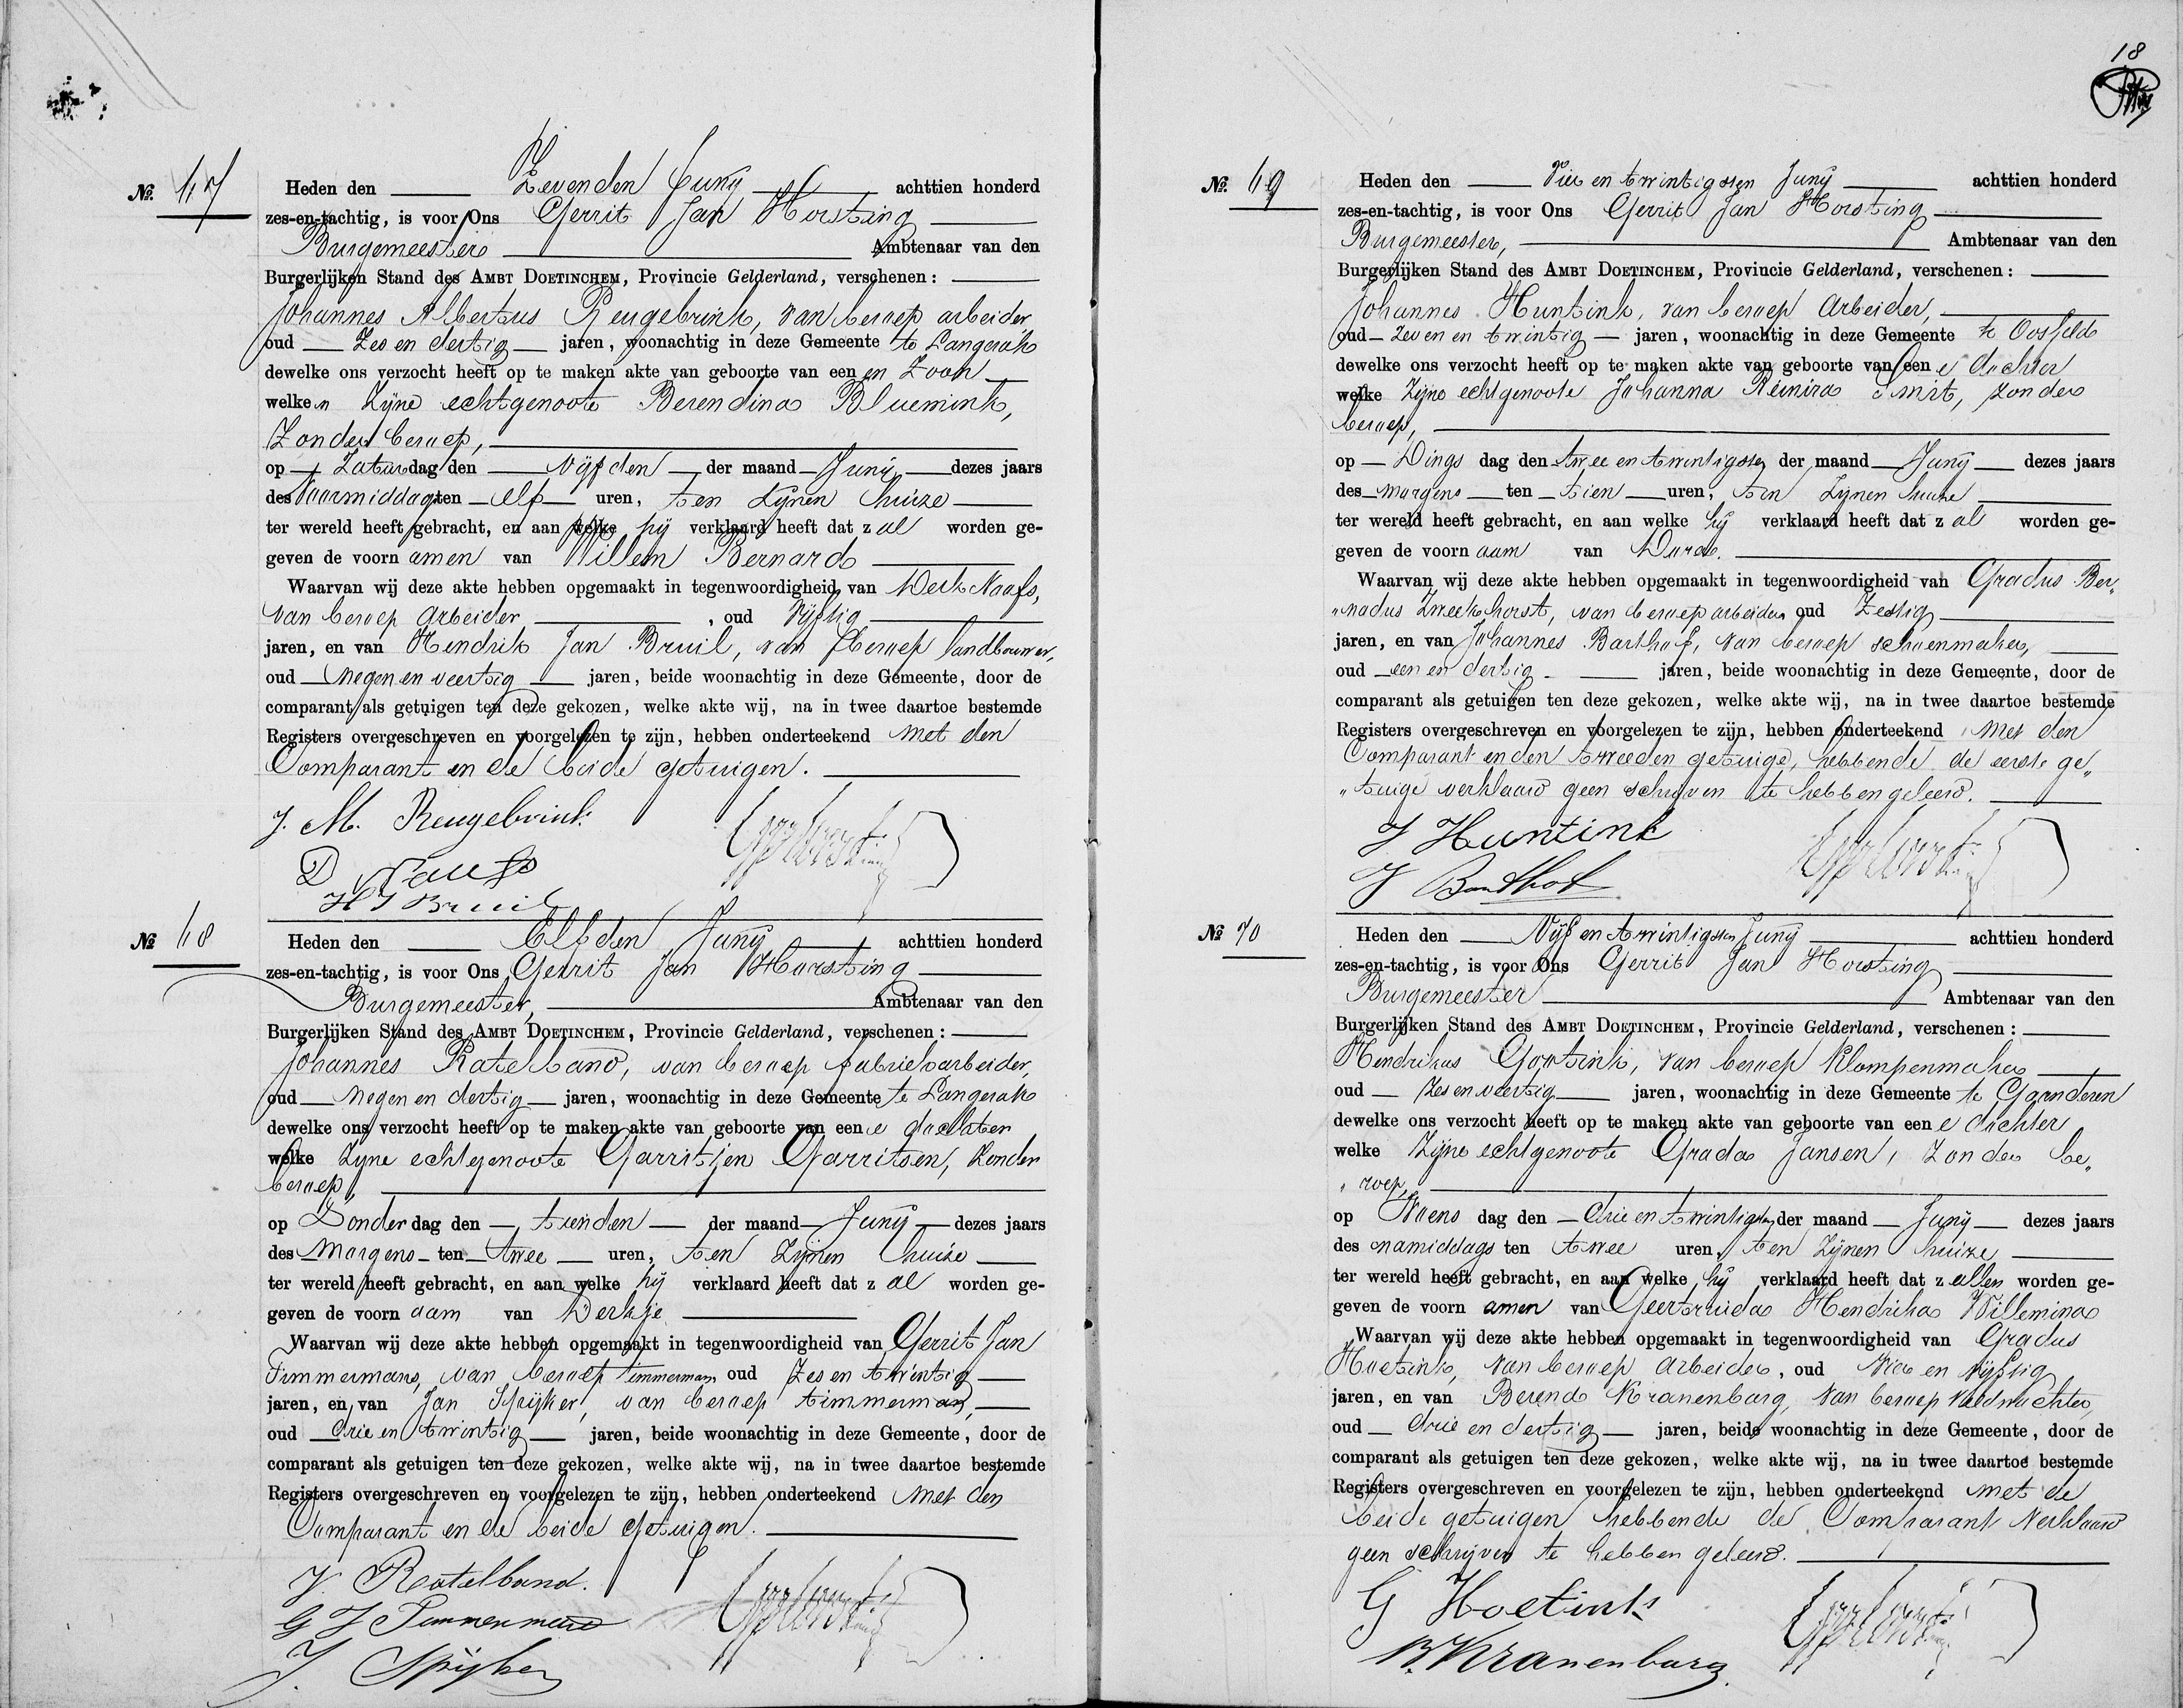 No. 67
Heden den Zevenden Juny achttien honderd
zes-en-tachtig, is voor Ons Gerrit Jan Horsting
Burgemeester Ambtenaar van den
Burgerlijken Stand des AMBT DOETINCHEM, Provincie Gelderland, verschenen:
Johannes Albertus Reugebrink, van beroep arbeider,
oud Zes en dertig jaren, woonachtig in deze Gemeente te Langerak
dewelke ons verzocht heeft op te maken akte van geboorte van een en Zoon
welken Zijne echtgenoote Berendina Bluemink,
Zonder beroep,
op Zaturdag den vijfden der maand Juny dezes jaars
des Voormiddags ten elf uren, ten Zijnen huize
ter wereld heeft gebracht, en aan welke hij verklaard heeft dat z al worden ge-
geven de voorn amen van Willem Bernard
Waarvan wij deze akte hebben opgemaakt in tegenwoordigheid van Derk Naafs,
van beroep Arbeider, oud Vijftig
jaren, en van Hendrik Jan Bruil, van beroep landbouwer,
oud Negen en veertig jaren, beide woonachtig in deze Gemeente, door de
comparant als getuigen ten deze gekozen, welke akte wij, na in twee daartoe bestemde
Registers overgeschreven en voorgelezen te zijn, hebben onderteekend met den
Comparant en de beide getuigen.
J. A. Reugebrink
D Naafs
H J Bruil
No 68
Heden den Elfden Juny achttien honderd
zes-en-tachtig, is voor Ons Gerrit Jan Horsting
Burgemeester, Ambtenaar van den
Burgerlijken Stand des AMBT DOETINCHEM, Provincie Gelderland, verschenen:
Johannes Ratelband, van beroep fabriekarbeider,
oud Negen en dertig jaren, woonachtig in deze Gemeente te Langerak
dewelke ons verzocht heeft op te maken akte van geboorte van een e dochter
welke Zijne echtgenoote Garritjen Garritsen, Zonder
beroep,
op Donder dag den tienden der maand Juny dezes jaars
des Morgens ten twee uren, ten Zijnen huize
ter wereld heeft gebracht, en aan welke hij verklaard heeft dat z al worden ge-
geven de voorn aam van Derkje
Waarvan wij deze akte hebben opgemaakt in tegenwoordigheid van Gerrit Jan
Timmermans, van beroep timmerman oud Zes en twintig
jaren, en van Jan Spijker, van beroep timmerman,
oud Drie en twintig jaren, beide woonachtig in deze Gemeente, door de
comparant als getuigen ten deze gekozen, welke akte wij, na in twee daartoe bestemde
Registers overgeschreven en voorgelezen te zijn, hebben onderteekend met den
Comparant en de beide getuigen.
J. Ratelband.
G J Timmermans
J. Spijker
18
No. 69
Heden den Vier en twintigsten Juny achttien honderd
zes-en-tachtig, is voor Ons Gerrit Jan Horsting
Burgemeester, Ambtenaar van den
Burgerlijken Stand des AMBT DOETINCHEM, Provincie Gelderland, verschenen:
Johannes Huntink, van beroep Arbeider,
oud Zeven en twintig jaren, woonachtig in deze Gemeente te Oosseld
dewelke ons verzocht heeft op te maken akte van geboorte van een e dochter
welke Zijne echtgenoote Johanna Reinira Smit, zonder
beroep,
op Dings dag den twee en twintigsten der maand Juny dezes jaars
des morgens ten tien uren, ten Zijnen huize
ter wereld heeft gebracht, en aan welke hij verklaard heeft dat z al worden ge-
geven de voorn aam van Dura.
Waarvan wij deze akte hebben opgemaakt in tegenwoordigheid van Gradus Ber„
„nadus Zweekhorst, van beroep arbeider oud Zestig
jaren, en van Johannes Barthof, van beroep schoenmaker,
oud een en dertig jaren, beide woonachtig in deze Gemeente, door de
comparant als getuigen ten deze gekozen, welke akte wij, na in twee daartoe bestemde
Registers overgeschreven en voorgelezen te zijn, hebben onderteekend met den
Comparant en den tweeden getuige, hebbende de eerste ge„
„tuige verklaard geen schrijven te hebben geleerd.
J Huntink
J Barthof
No 70
Heden den Vijf en twintigsten Juny achttien honderd
zes-en-tachtig, is voor Ons Gerrit Jan Horsting
Burgemeester Ambtenaar van den
Burgerlijken Stand des AMBT DOETINCHEM, Provincie Gelderland, verschenen:
Hendrikus Gootink, van beroep Klompenmaker
oud Zes en veertig jaren, woonachtig in deze Gemeente te Gaanderen
dewelke ons verzocht heeft op te maken akte van geboorte van een e dochter
welke Zijne echtgenoote Grada Jansen, Zonder be„
„roep,
op Woens dag den drie en twintigsten der maand Juny dezes jaars
des namiddags ten twee uren, ten Zijnen huize
ter wereld heeft gebracht, en aan welke hij verklaard heeft dat z allen worden ge-
geven de voorn amen van Geertruida Hendrika Willemina
Waarvan wij deze akte hebben opgemaakt in tegenwoordigheid van Gradus
Hoetink, van beroep Arbeider, oud Vier en vijftig
jaren, en van Berend Kranenbarg, van beroep Veldwachter,
oud drie en dertig jaren, beide woonachtig in deze Gemeente, door de
comparant als getuigen ten deze gekozen, welke akte wij, na in twee daartoe bestemde
Registers overgeschreven en voorgelezen te zijn, hebben onderteekend met de
beide getuigen hebbende de Comparant Verklaard
geen schrijven te hebben geleerd.
G Hoetink
B. Kranenbarg